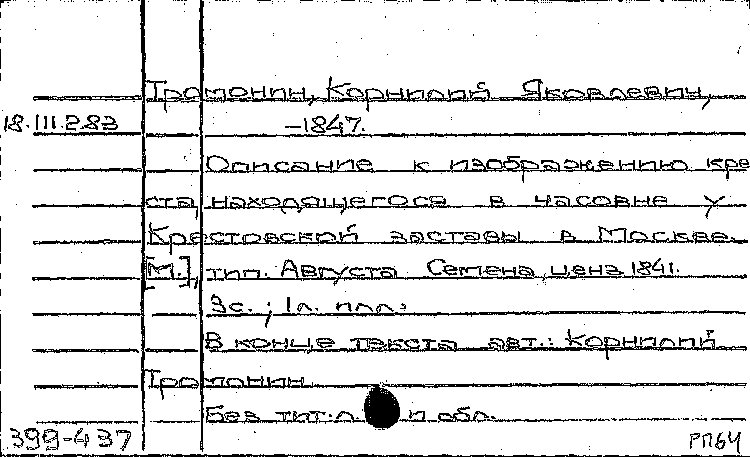 Тромонин, Корнилий Яковлевич,
18.III.2.83 -1847.
Описание к изображению кре
ста, находящегося в часовне у
Крестовской заставы в Москве.
[М.], тип. Августа Семена, ценз. 1841.
3с.; 1л. илл.
В конце текста авт.: Корнилий
Тромонин.
Без тит. л. и обл.
399-437 РПБ4